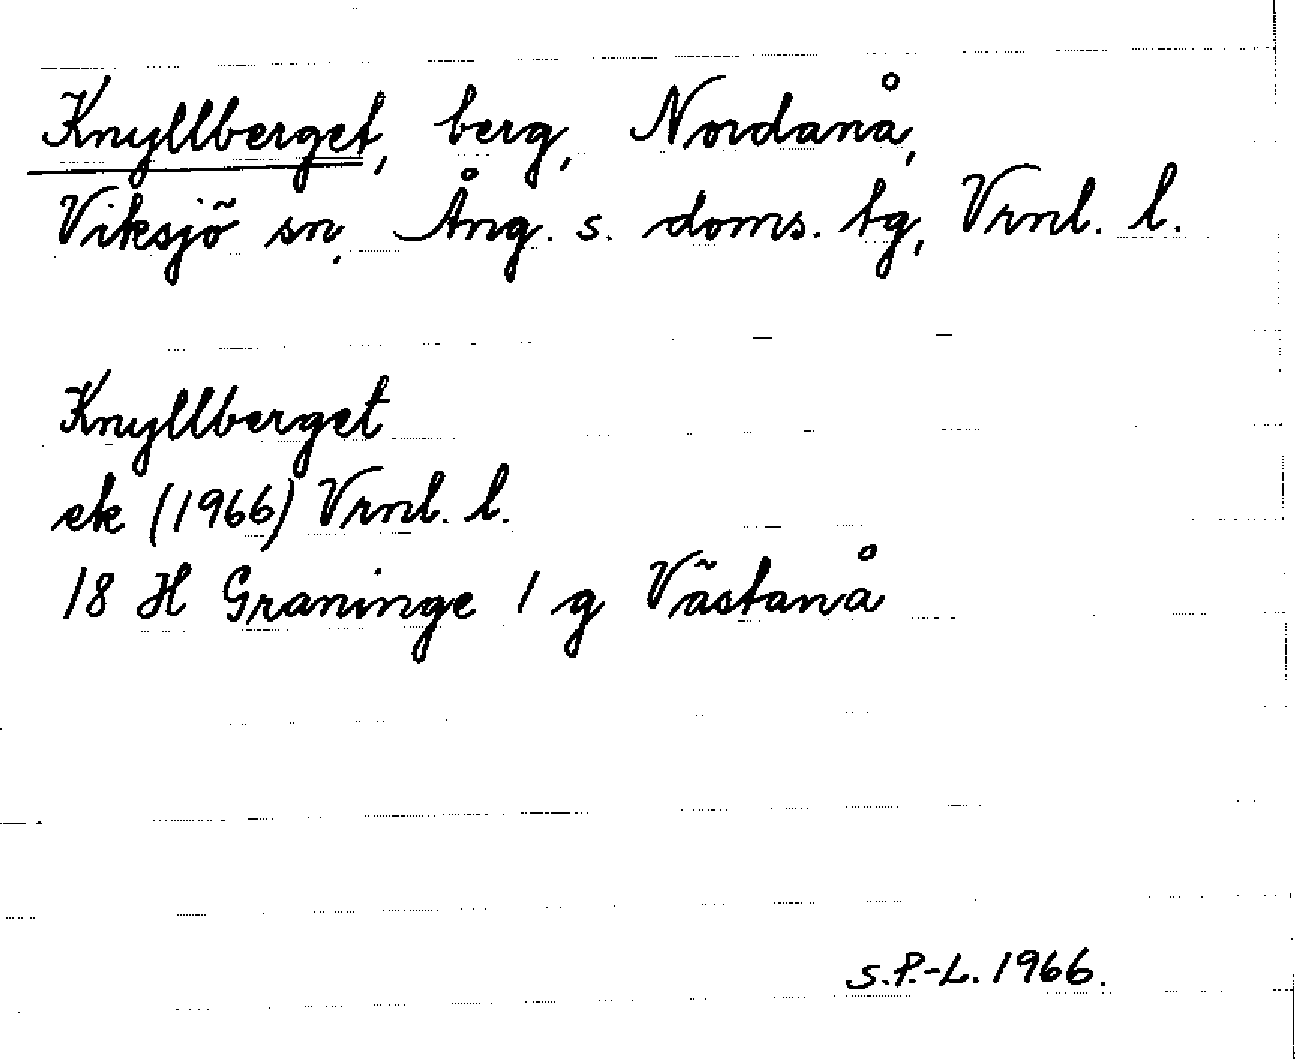 Knyllberget, berg, Nordanå,
Viksjö sn, Ång. s. doms. tg, Vrnl. l.
Knyllberget
ek (1966) Vrnl. l.
18 H Graninge 1 g Västanå
S.P.-L. 1966.